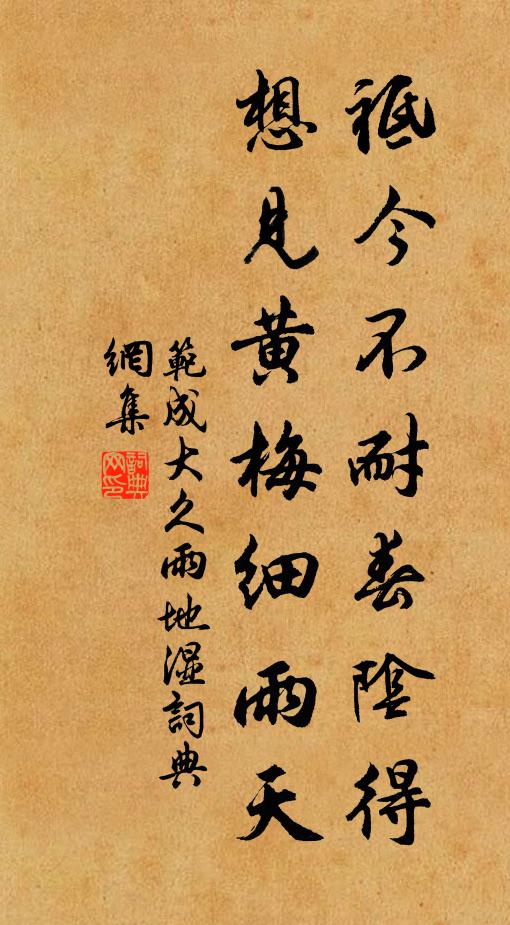 祗今不耐春陰得
想見黄梅細雨天
範成大久雨地濕詞典
網集
詞典
网印